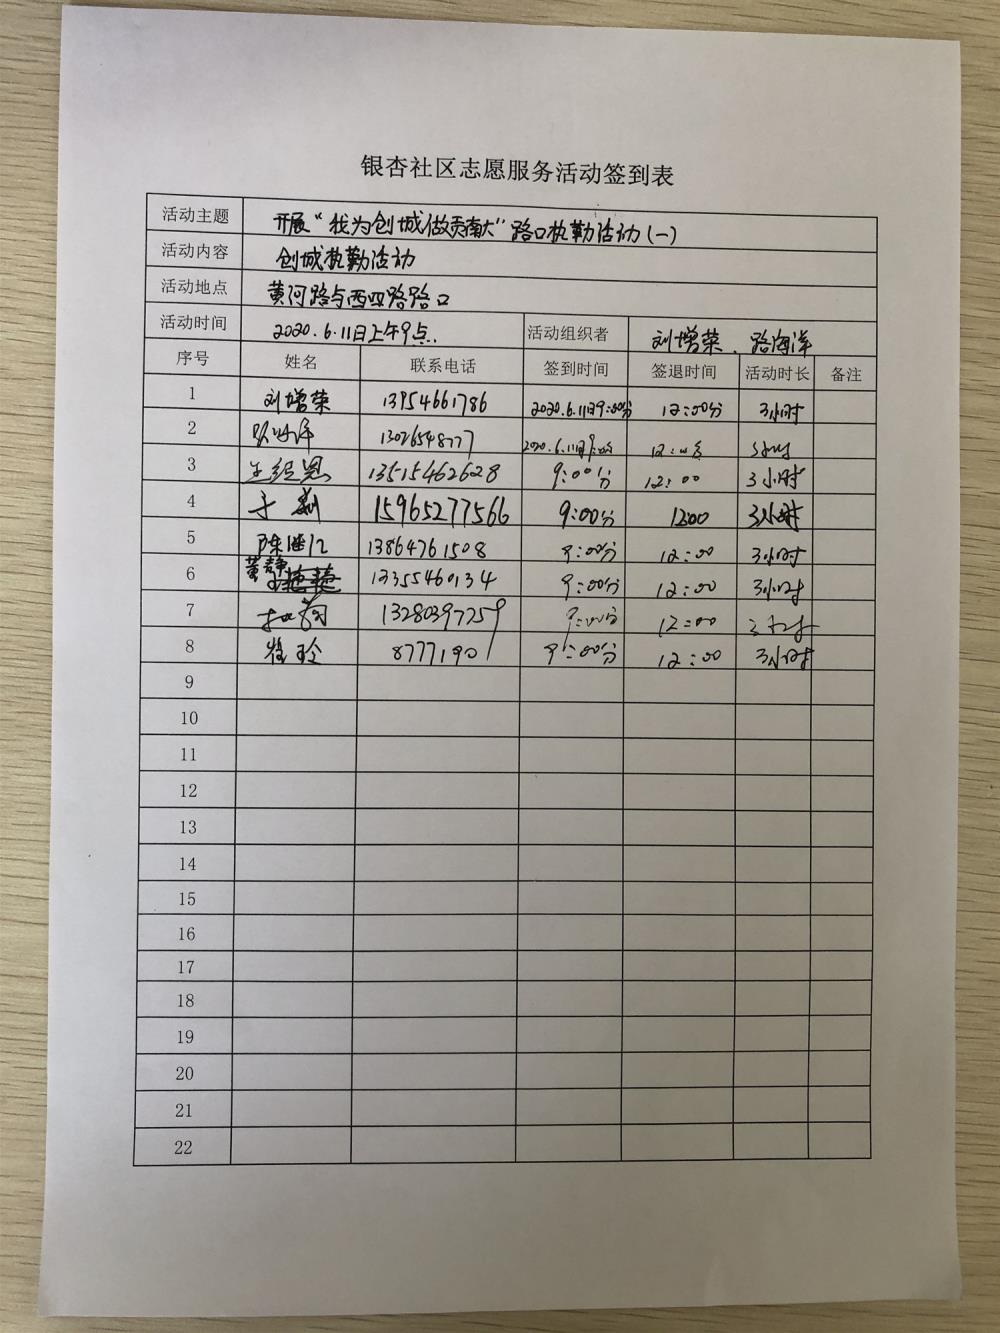 银杏社区志愿服务活动签到表
活动主题 开展“我为创城做贡献”路口执勤活动(一)
活动内容 创城执勤活动
活动地点 黄河路与西四路路口
活动时间 2020.6.11日上午9点. 活动组织者 刘增荣、路海洋
序号 姓名 联系电话 签到时间 签退时间 活动时长 备注
1 刘增荣 13954661786 2020.6.11日9:00分 12:00分 3小时
2 路海洋 13026548777 2020.6.11日9:00分 12:00分 3小时
3 13515462628 9:00分 12:00 3小时
4 于 15965277566 9:00分 1200 3小时
5 陈 13864761508 9:00分 12:00 3小时
6 黄静 13355460134 9:00分 12:00 3小时
7 13280397259 9:00分 12:00 3小时
8 崔玲 8777190 9:00分 12:00 3小时
9
10
11
12
13
14
15
16
17
18
19
20
21
22